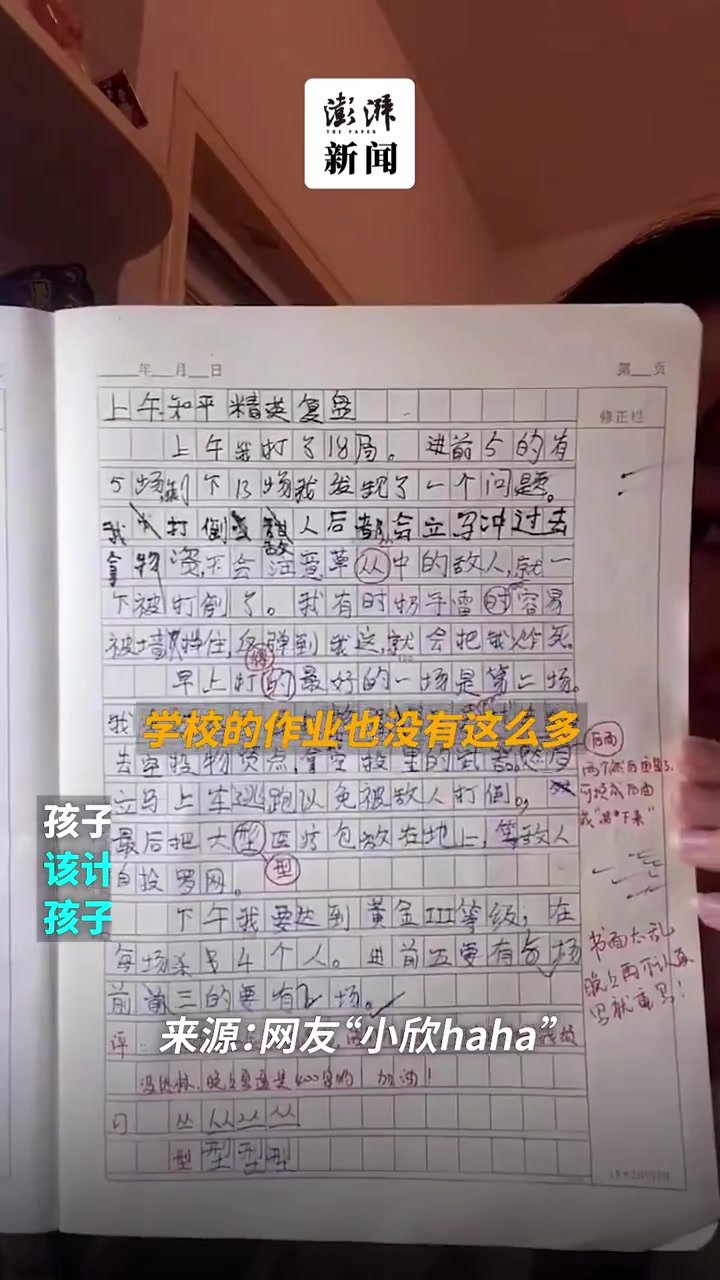 澎湃
THE PAPER
新闻
年 月 日
第 页
修正栏
上午和平精英复盘
上午我打了18局。进前5的有
5场,剩下13场我发现了一个问题。
我打倒敌人后都会立马冲过去
拿物资,不会注意草丛中的敌人,就一
下被打倒了。我有时扔手雷时容易
被墙挡住,弹到我这,就会把我炸死。
得
早上打的最好的一场是第二场。
我
学校的作业也没有这么多
去空投物资点,拿空投里的武器。然后
立马上车逃跑以免被敌人打倒。
最后把大型医疗包放在地上,等敌人
自投罗网。
型
下午我要达到黄金III等级,在
每场杀另4个人。进前五要有5场
前三的要有2场。
后面
两个然后重复了,
可换成后面
或"接下来"
书面太乱
晚上再不认真
写就重写!
孩子
该计
孩子
来源:网友“小欣haha”
评
没达标,晚上复盘共400字哟 加油!
订 丛 丛 丛 丛
型 型 型 型